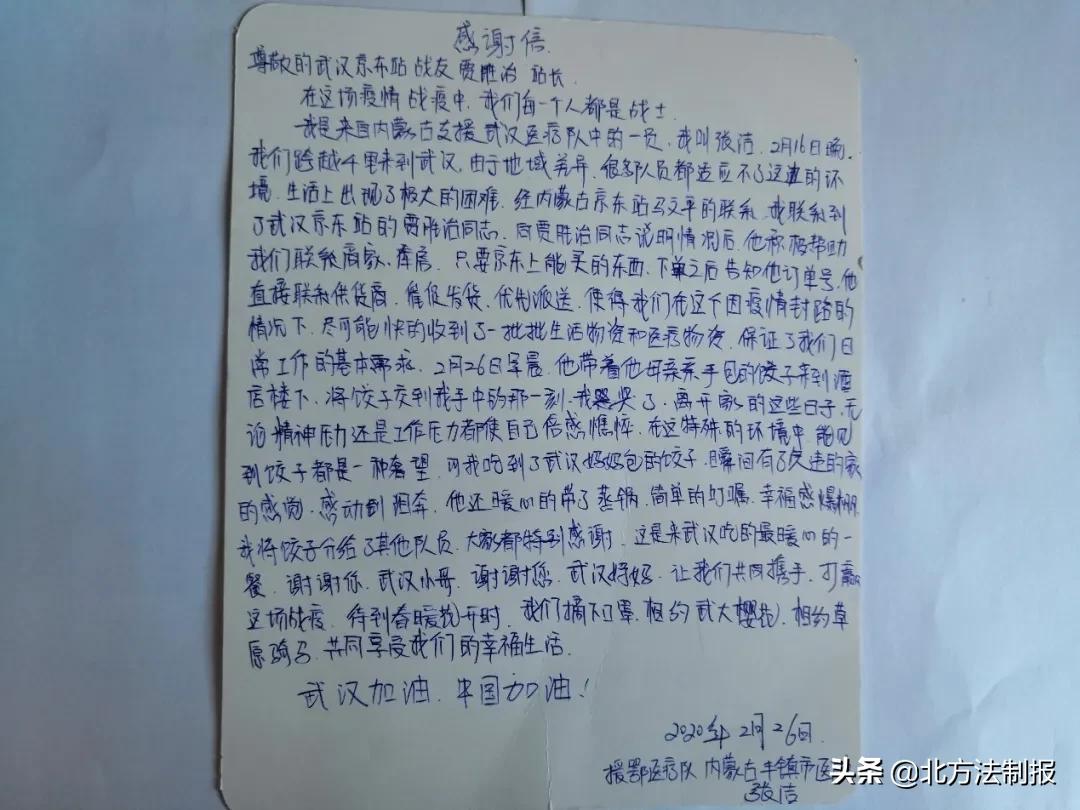 感谢信.
尊敬的武汉京东站战友贾胜治 站长.
在这场疫情战疫中,我们每一个人都是战士.
我是来自内蒙古支援武汉医疗队中的一员,我叫张洁,2月16日晚.
我们跨越千里来到武汉,由于地域差异,很多队员都适应不了这边的环
境,生活上出现了极大的困难,经内蒙古京东站马文平的联系,我联系到
了武汉京东站的贾胜治同志,同贾胜治同志说明情况后,他积极帮助
我们联系商家、库房,只要京东上能买的东西,下单之后告知他订单号,他
直接联系供货商,催促发货,优先派送,使得我们在这个因疫情封路的
情况下,尽可能快的收到了一批批生活物资和医疗物资,保证了我们日
常工作的基本需求,2月26日早晨,他带着他母亲亲手包的饺子来到酒
店楼下,将饺子交到我手中的那一刻,我哭了,离开家的这些日子,无
论精神压力还是工作压力都使自己倍感憔悴,在这特殊的环境中,能见
到饺子都是一种奢望,可我吃到了武汉妈妈包的饺子,瞬间有了久违的家
的感觉,感动到泪奔,他还暖心的带了蒸锅,简单的叮嘱,幸福感爆棚.
我将饺子分给了其他队员,大家都特别感谢,这是来武汉吃的最暖心的一
餐,谢谢你,武汉小哥,谢谢您,武汉妈妈,让我们共同携手,打赢
这场战疫,待到春暖花开时,我们摘下口罩,相约武大樱花,相约草
原骑马,共同享受我们的幸福生活.
武汉加油,中国加油!
2020年2月26日.
援鄂医疗队 内蒙古丰镇市医
张洁
头条 @北方法制报